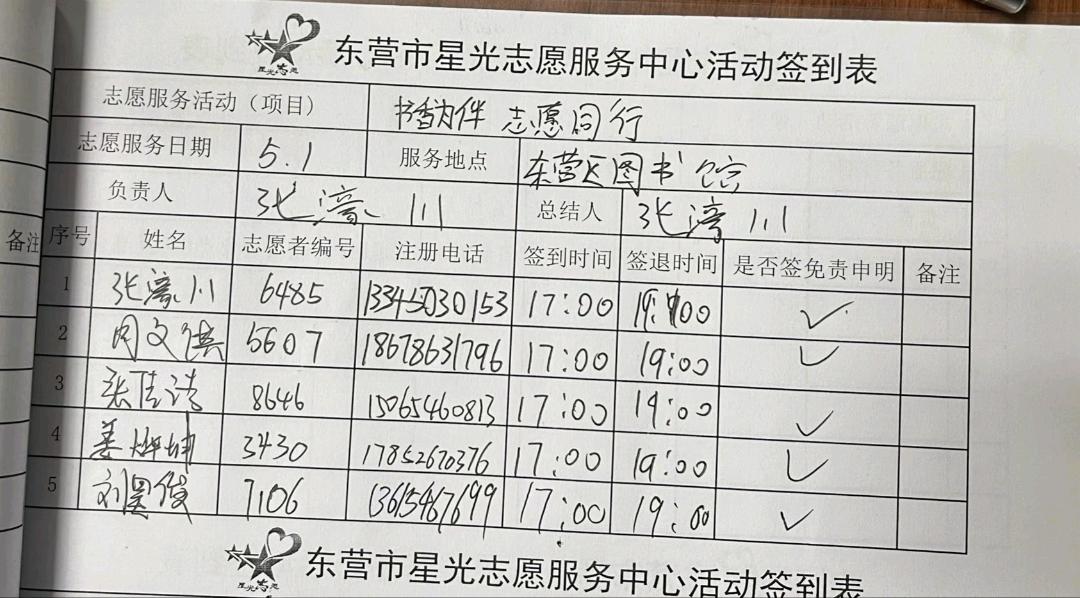 东营市星光志愿服务中心活动签到表
志愿服务活动（项目） 书香为伴 志愿同行
志愿服务日期 5.1 服务地点 东营区图书馆
负责人 张 川 总结人 张 川
备注 序号 姓名 志愿者编号 注册电话 签到时间 签退时间 是否签免责申明 备注
1 张 川 6485 13345030153 17:00 19:00 ✓
2 周文 5607 18678631796 17:00 19:00 ✓
3 张佳 8646 15065460813 17:00 19:00 ✓
4 姜 坤 3430 17852670376 17:00 19:00 ✓
5 刘昊俊 7106 13615467699 17:00 19:00 ✓
东营市星光志愿服务中心活动签到表